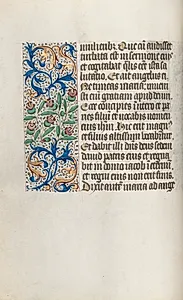 mulieribz. Que cū audisset
turbata est in sermone eius
et cogitabat qualis esset ista sa
lutatio. Et ait angelus ei
Ne timeas maria: inueni
sti eni gratiam apud deum
Ecce concipies in utero et pa
ries filiū et vocabis nomen
eius ihm. hic erit magnꝰ
et filius altissimi vocabitur
Et dabit illi dn̄s deus sedem
dauid patris eius et regna
bit in domo iacob in eternū
et regni eius non erit finis.
Dixit autē maria ad ange